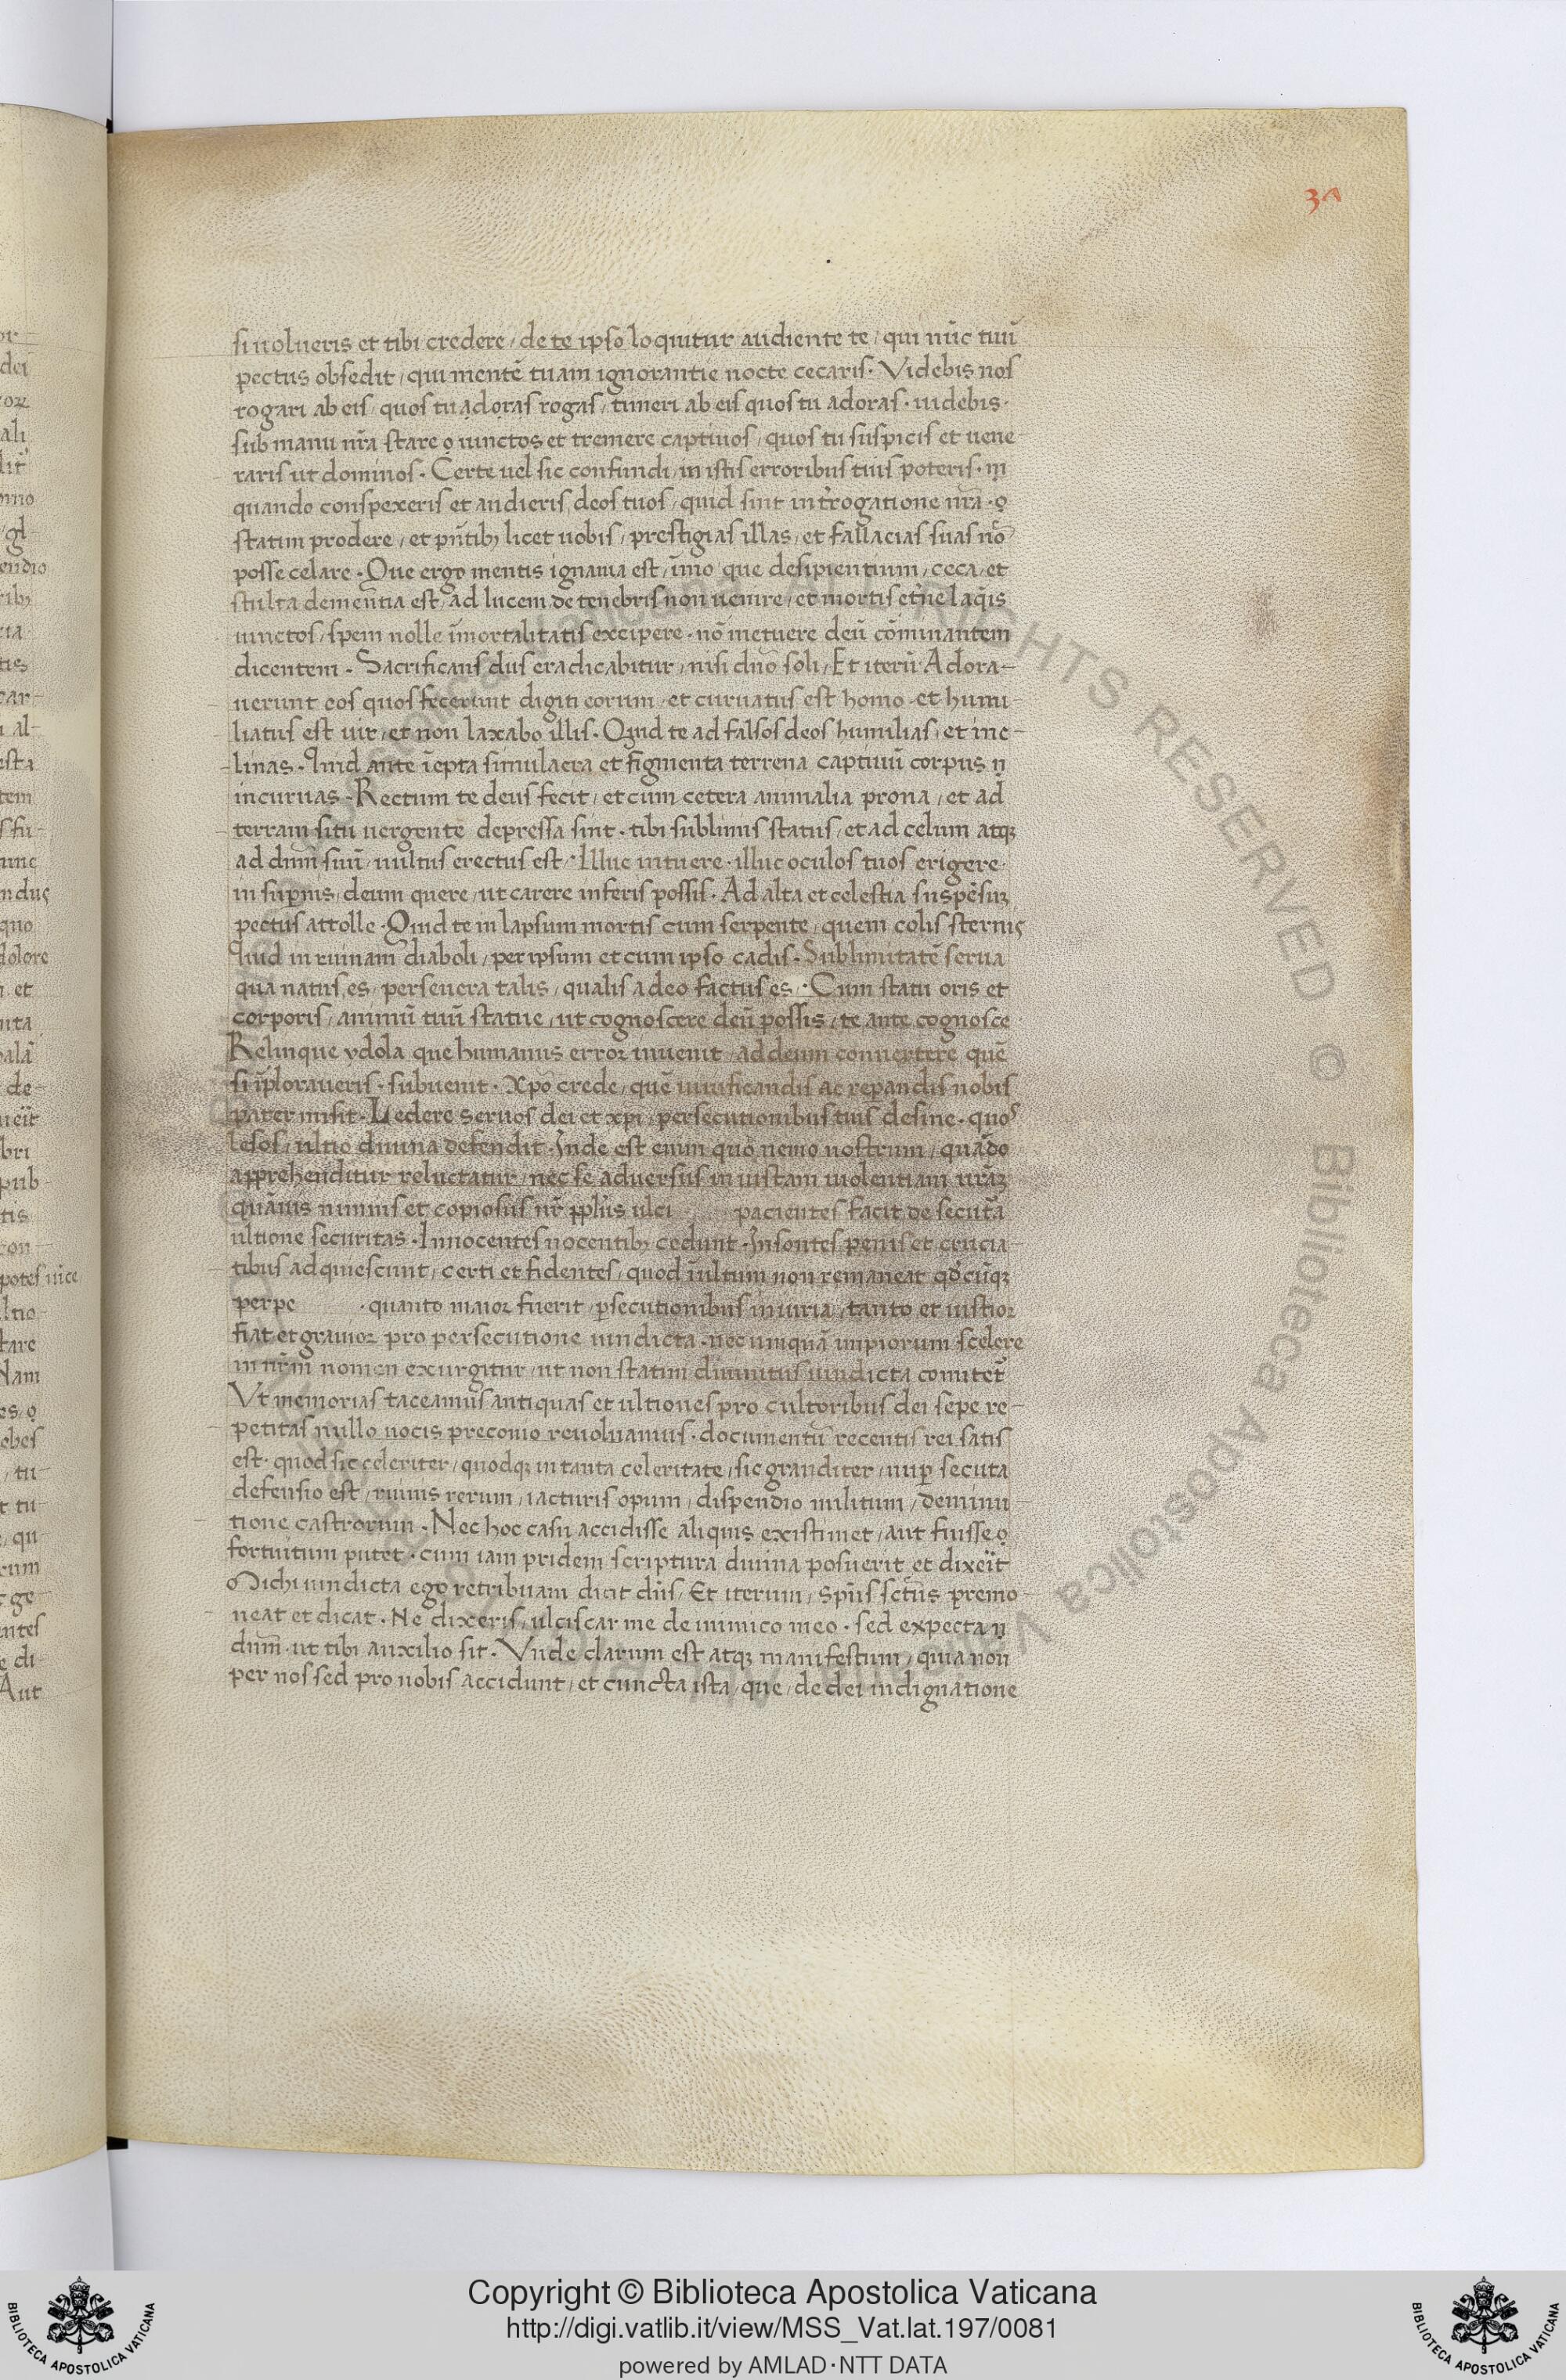 3Λ
si uolueris et tibi credere, de te ipso loquitur audiente te, qui nūc tuū
pectus obsedit, qui mentē tuam ignorantie nocte cecaris. Videbis nos
rogari ab eis, quos tu adoras rogas, timeri ab eis quos tu adoras. uidebis.
sub manu nr̄a stare uinctos et tremere captiuos, quos tu suspicis et uene
raris ut dominos. Certe uel sic confundi, in istis erroribus tuis poteris.
quando conspexeris et audieris, deos tuos, quid sint int̄rogatione nr̄a.
statim prodere, et pn̄tibꝫ licet uobis, prestigias illas, et fallacias suas nō
posse celare. Que ergo mentis ignauia est, īmo que desipientium, ceca, et
stulta dementia est, ad lucem de tenebris non uenire, et mortis et̄ne laq̄is
uinctos, spem nolle īmortalitatis excipere. nō metuere deū cōminantem
dicentem. Sacrificans diis eradicabitur, nisi dn̄o soli, Et iterū Adora-
uerunt eos quos fecerunt digiti eorum, et curuatus est homo. et humi
liatus est uir, et non laxabo illis. Quid te ad falsos deos humilias, et inc-
linas. Quid ante īepta simulacra et figmenta terrena captiuū corpus
incuruas. Rectum te deus fecit, et cum cetera animalia prona, et ad
terram situ uergente depressa sint. tibi sublimis status, et ad celum atqꝫ
ad dnm̄ suū, uultus erectus est. Illuc intuere. illuc oculos tuos erigere.
in sup̄nis, deum quere, ut carere inferis possis. Ad alta et celestia suspēsuꝫ
pectus attolle. Quid te in lapsum mortis cum serpente, quem colis sternis
Quid in ruinam diaboli, per ipsum et cum ipso cadis. Sublimitatē serua
qua natus es, perseuera talis, qualis a deo factus es. Cum statu oris et
corporis, animū tuū statue, ut cognoscere deū possis, te ante cognosce
Relinque ydola que humanus error inuenit, ad deum conuertere quē
si īploraueris. subuenit. Xp̄o crede, quē uiuificandis ac rep̄andis nobis
pater misit. Ledere seruos dei et xp̄i, persecutionibus tuis desine. quos
lesos, ultio diuina defendit. Inde est enim quo nemo nostrum, quādo
apprehenditur reluctatur, nec se aduersus iniustam uiolentiam ur̄aꝫ
quāuis nimius et copiosus nr̄ pp̄lus ulci pacientes facit de secut̄a
ultione securitas. Innocentes nocentibꝫ cedunt. Insontes penis et crucia
tibus adquiescunt, certi et fidentes, quod īultum non remaneat qd̄cūqꝫ
perpe . quanto maior fuerit, p̄secutionibus iniuria, tanto et iustior
fiat et grauior pro persecutione uindicta. nec umquā impiorum scelere
in nr̄m nomen exurgitur, ut non statim diuinitus uindicta comitet̄
Vt memorias taceamus antiquas et ultiones pro cultoribus dei sepe re-
petitas nullo uocis preconio reuoluamus. documentū recentis rei satis
est. quod sic celeriter, quodqꝫ in tanta celeritate, sic granditer, nup̄ secuta
defensio est, ruinis rerum, iacturis opum, dispendio militum, deminu
tione castrorum. Nec hoc casu accidisse aliquis existimet, aut fuisse
fortuitum putet. cum iam pridem scriptura diuina posuerit et dixeīt
Michi uindicta ego retribuam dicit dn̄s, Et iterum, Sp̄us sctūs premo
neat et dicat. Ne dixeris, ulciscar me de inimico meo. sed expecta
dnm̄. ut tibi auxilio sit. Vnde clarum est atqꝫ manifestum, quia non
per nos sed pro nobis accidunt, et cuncta ista, que, de dei indignatione
Copyright © Biblioteca Apostolica Vaticana
http://digi.vatlib.it/view/MSS_Vat.lat.197/0081
powered by AMLAD·NTT DATA
BIBLIOTECA APOSTOLICA VATICANA
BIBLIOTECA APOSTOLICA VATICANA